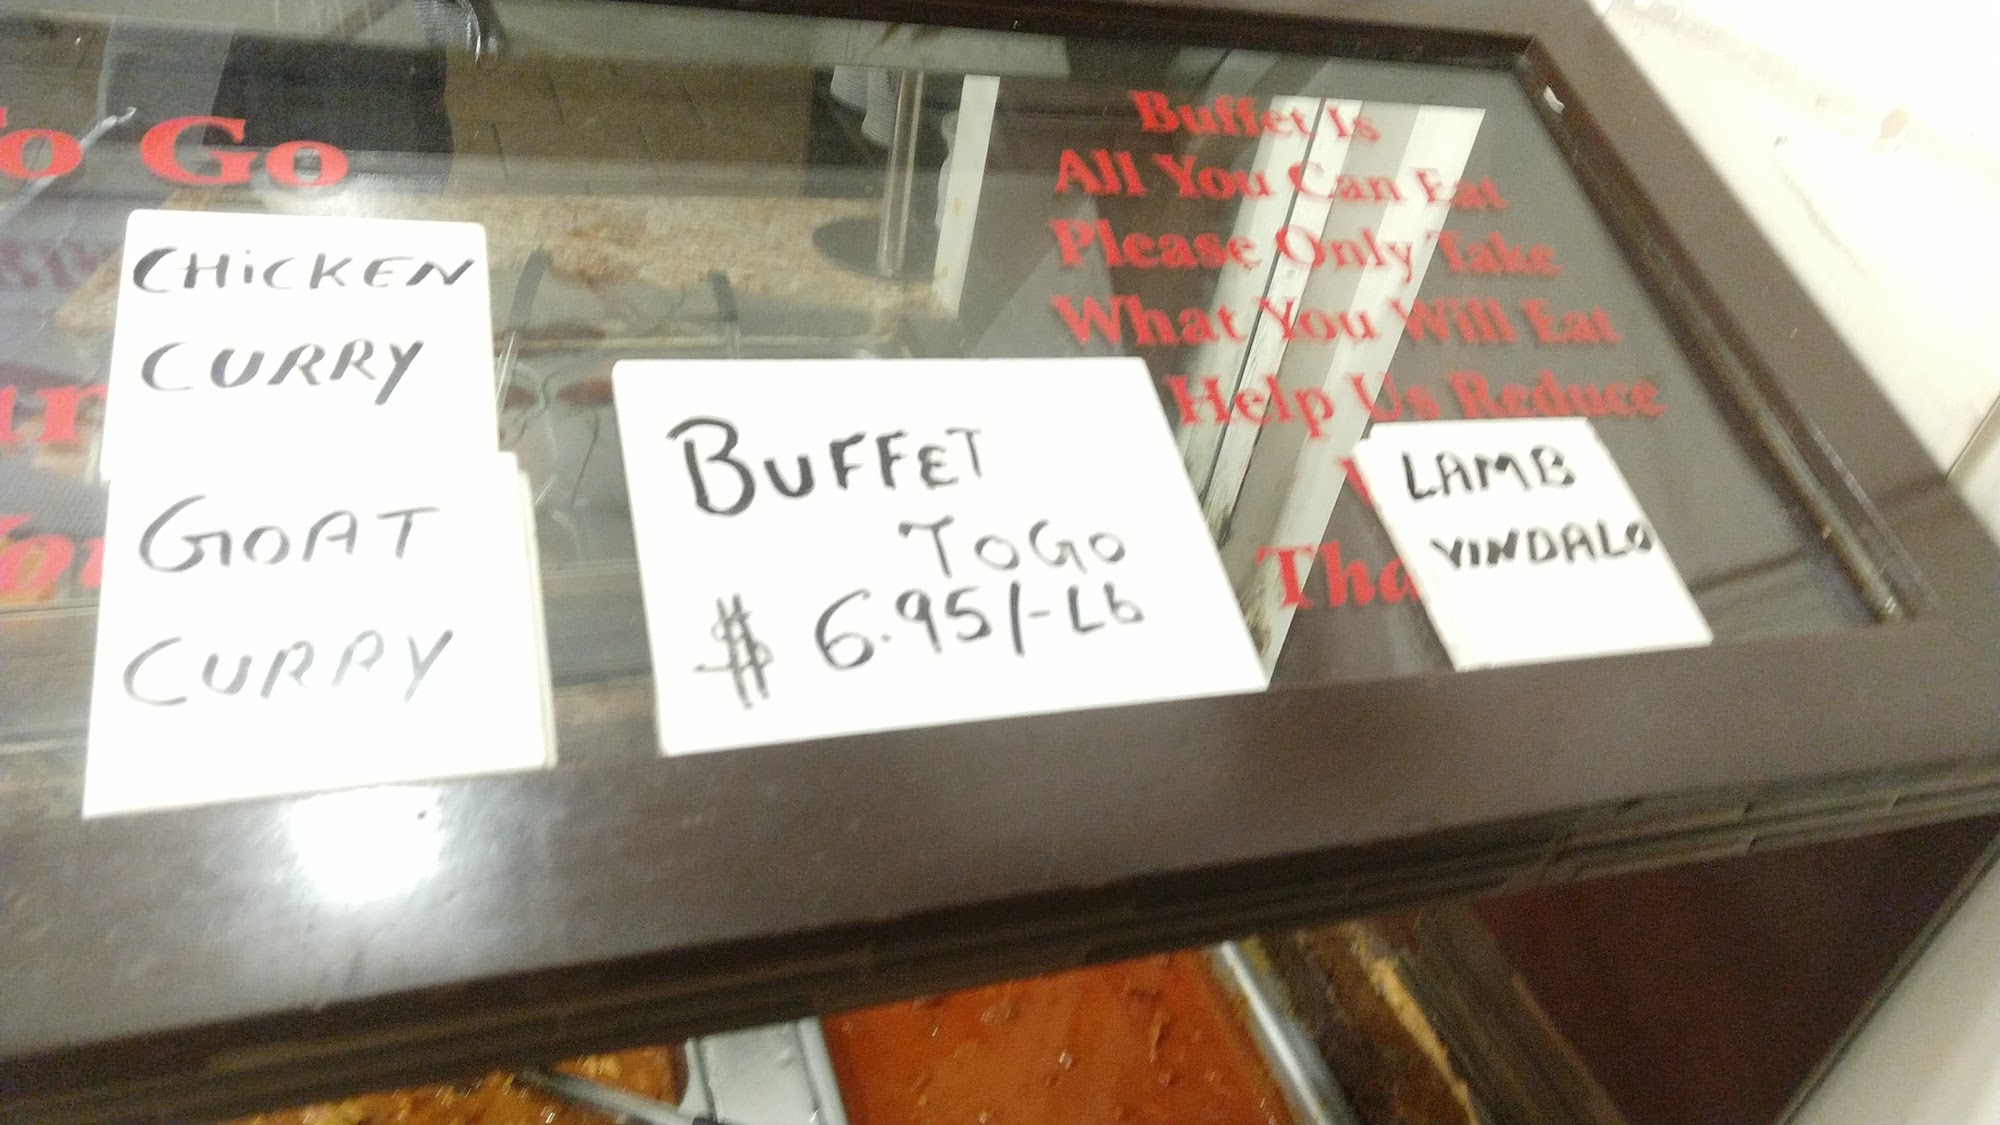 To Go
CHiCKEN
CURRY
GOAT
CURRY
BUFFET
TOGO
$ 6.95/-Lb
Buffet Is
All You Can Eat
Please Only Take
What You Will Eat
Help Us Reduce
LAMB
VINDALO